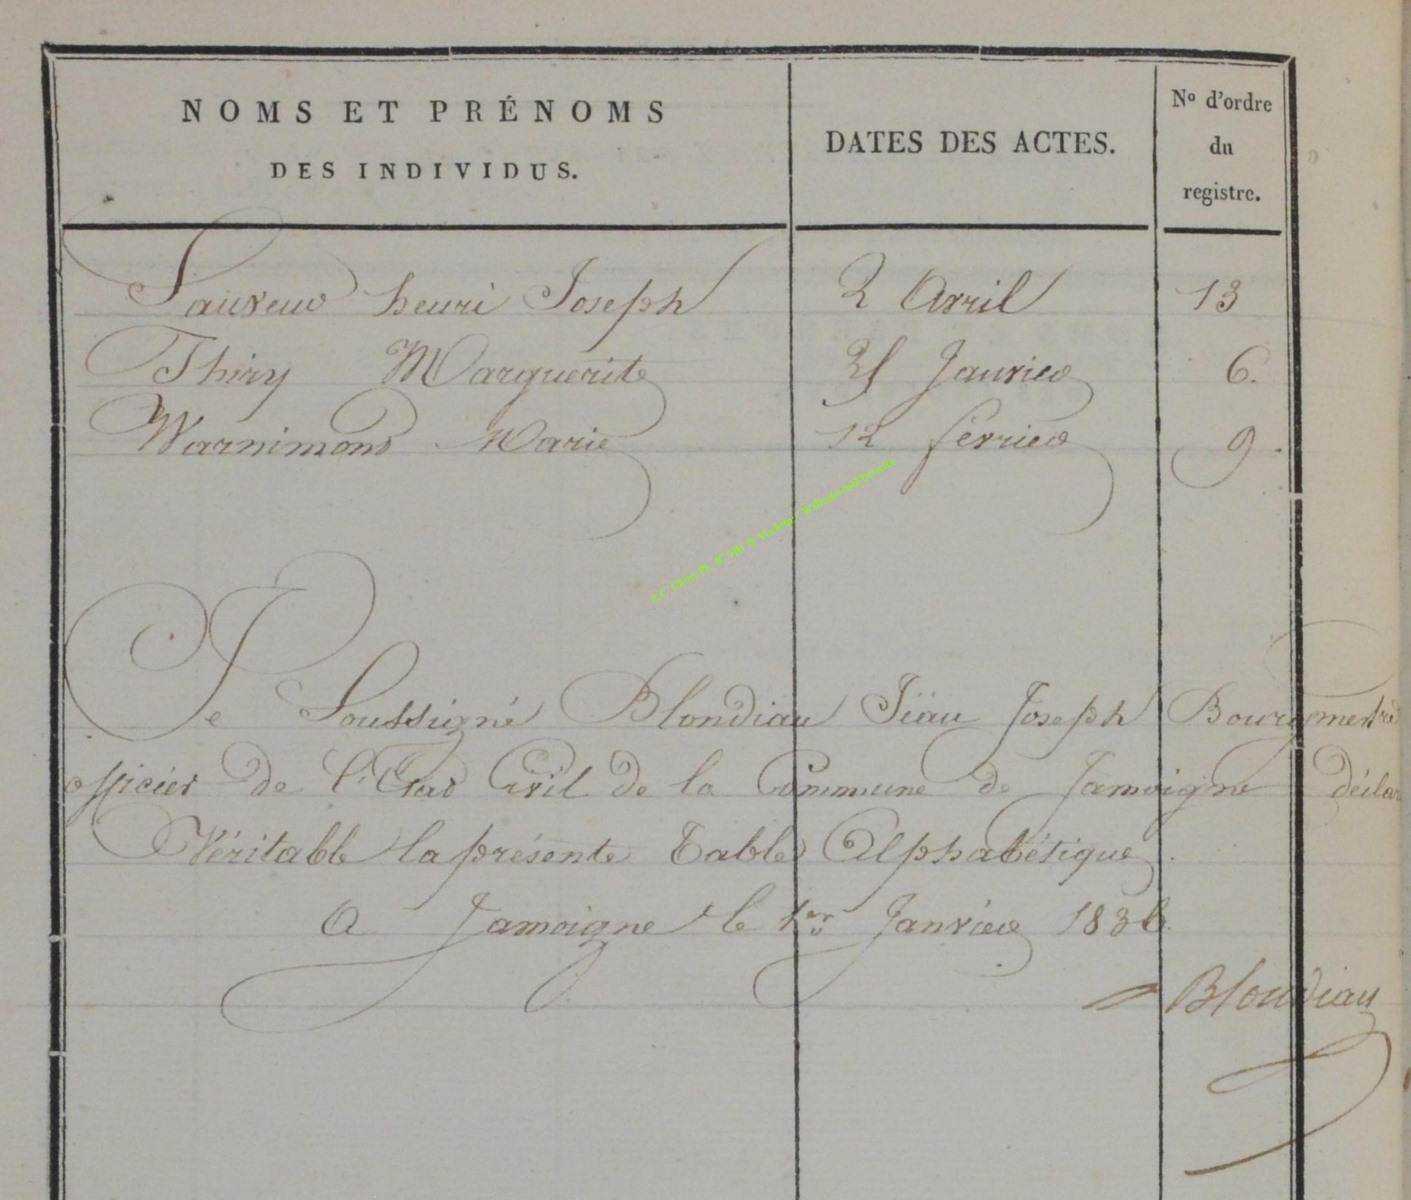 NOMS ET PRÉNOMS
DES INDIVIDUS.
DATES DES ACTES.
N° d'ordre
du
registre.
Sauveur henri Joseph 2 Avril 13
Thiry Marguerite Janvier 6.
Warnimont Marie 12 février 9.
Je Soussigné Blondiau Jean Joseph Bourgmestre
officier de l'Etat Civil de la Commune de Jamoigne déclare
Véritable la présente Table Alphabétique
A Jamoigne le 1er Janvier 1836.
Blondiau